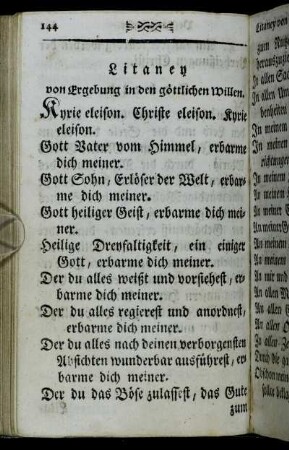 144
Litaney
von Ergebung in den göttlichen Willen.
Kyrie eleison. Christe eleison. Kyrie
eleison.
Gott Vater vom Himmel, erbarme
dich meiner.
Gott Sohn, Erlöser der Welt, erbar-
me dich meiner.
Gott heiliger Geist, erbarme dich mei-
ner.
Heilige Dreyfaltigkeit, ein einiger
Gott, erbarme dich meiner.
Der du alles weißt und vorsiehest, er-
barme dich meiner.
Der du alles regierest und anordnest,
erbarme dich meiner.
Der du alles nach deinen verborgensten
Absichten wunderbar ausführest, er-
barme dich meiner.
Der du das Böse zulassest, das Gute
zum
Litaney von
zum Nutze
herauszuzie
In allen Sa
In allen Um
In meinem
In meinem
In meinen
In meinem
An
An
An
An allen
An allen
In allen